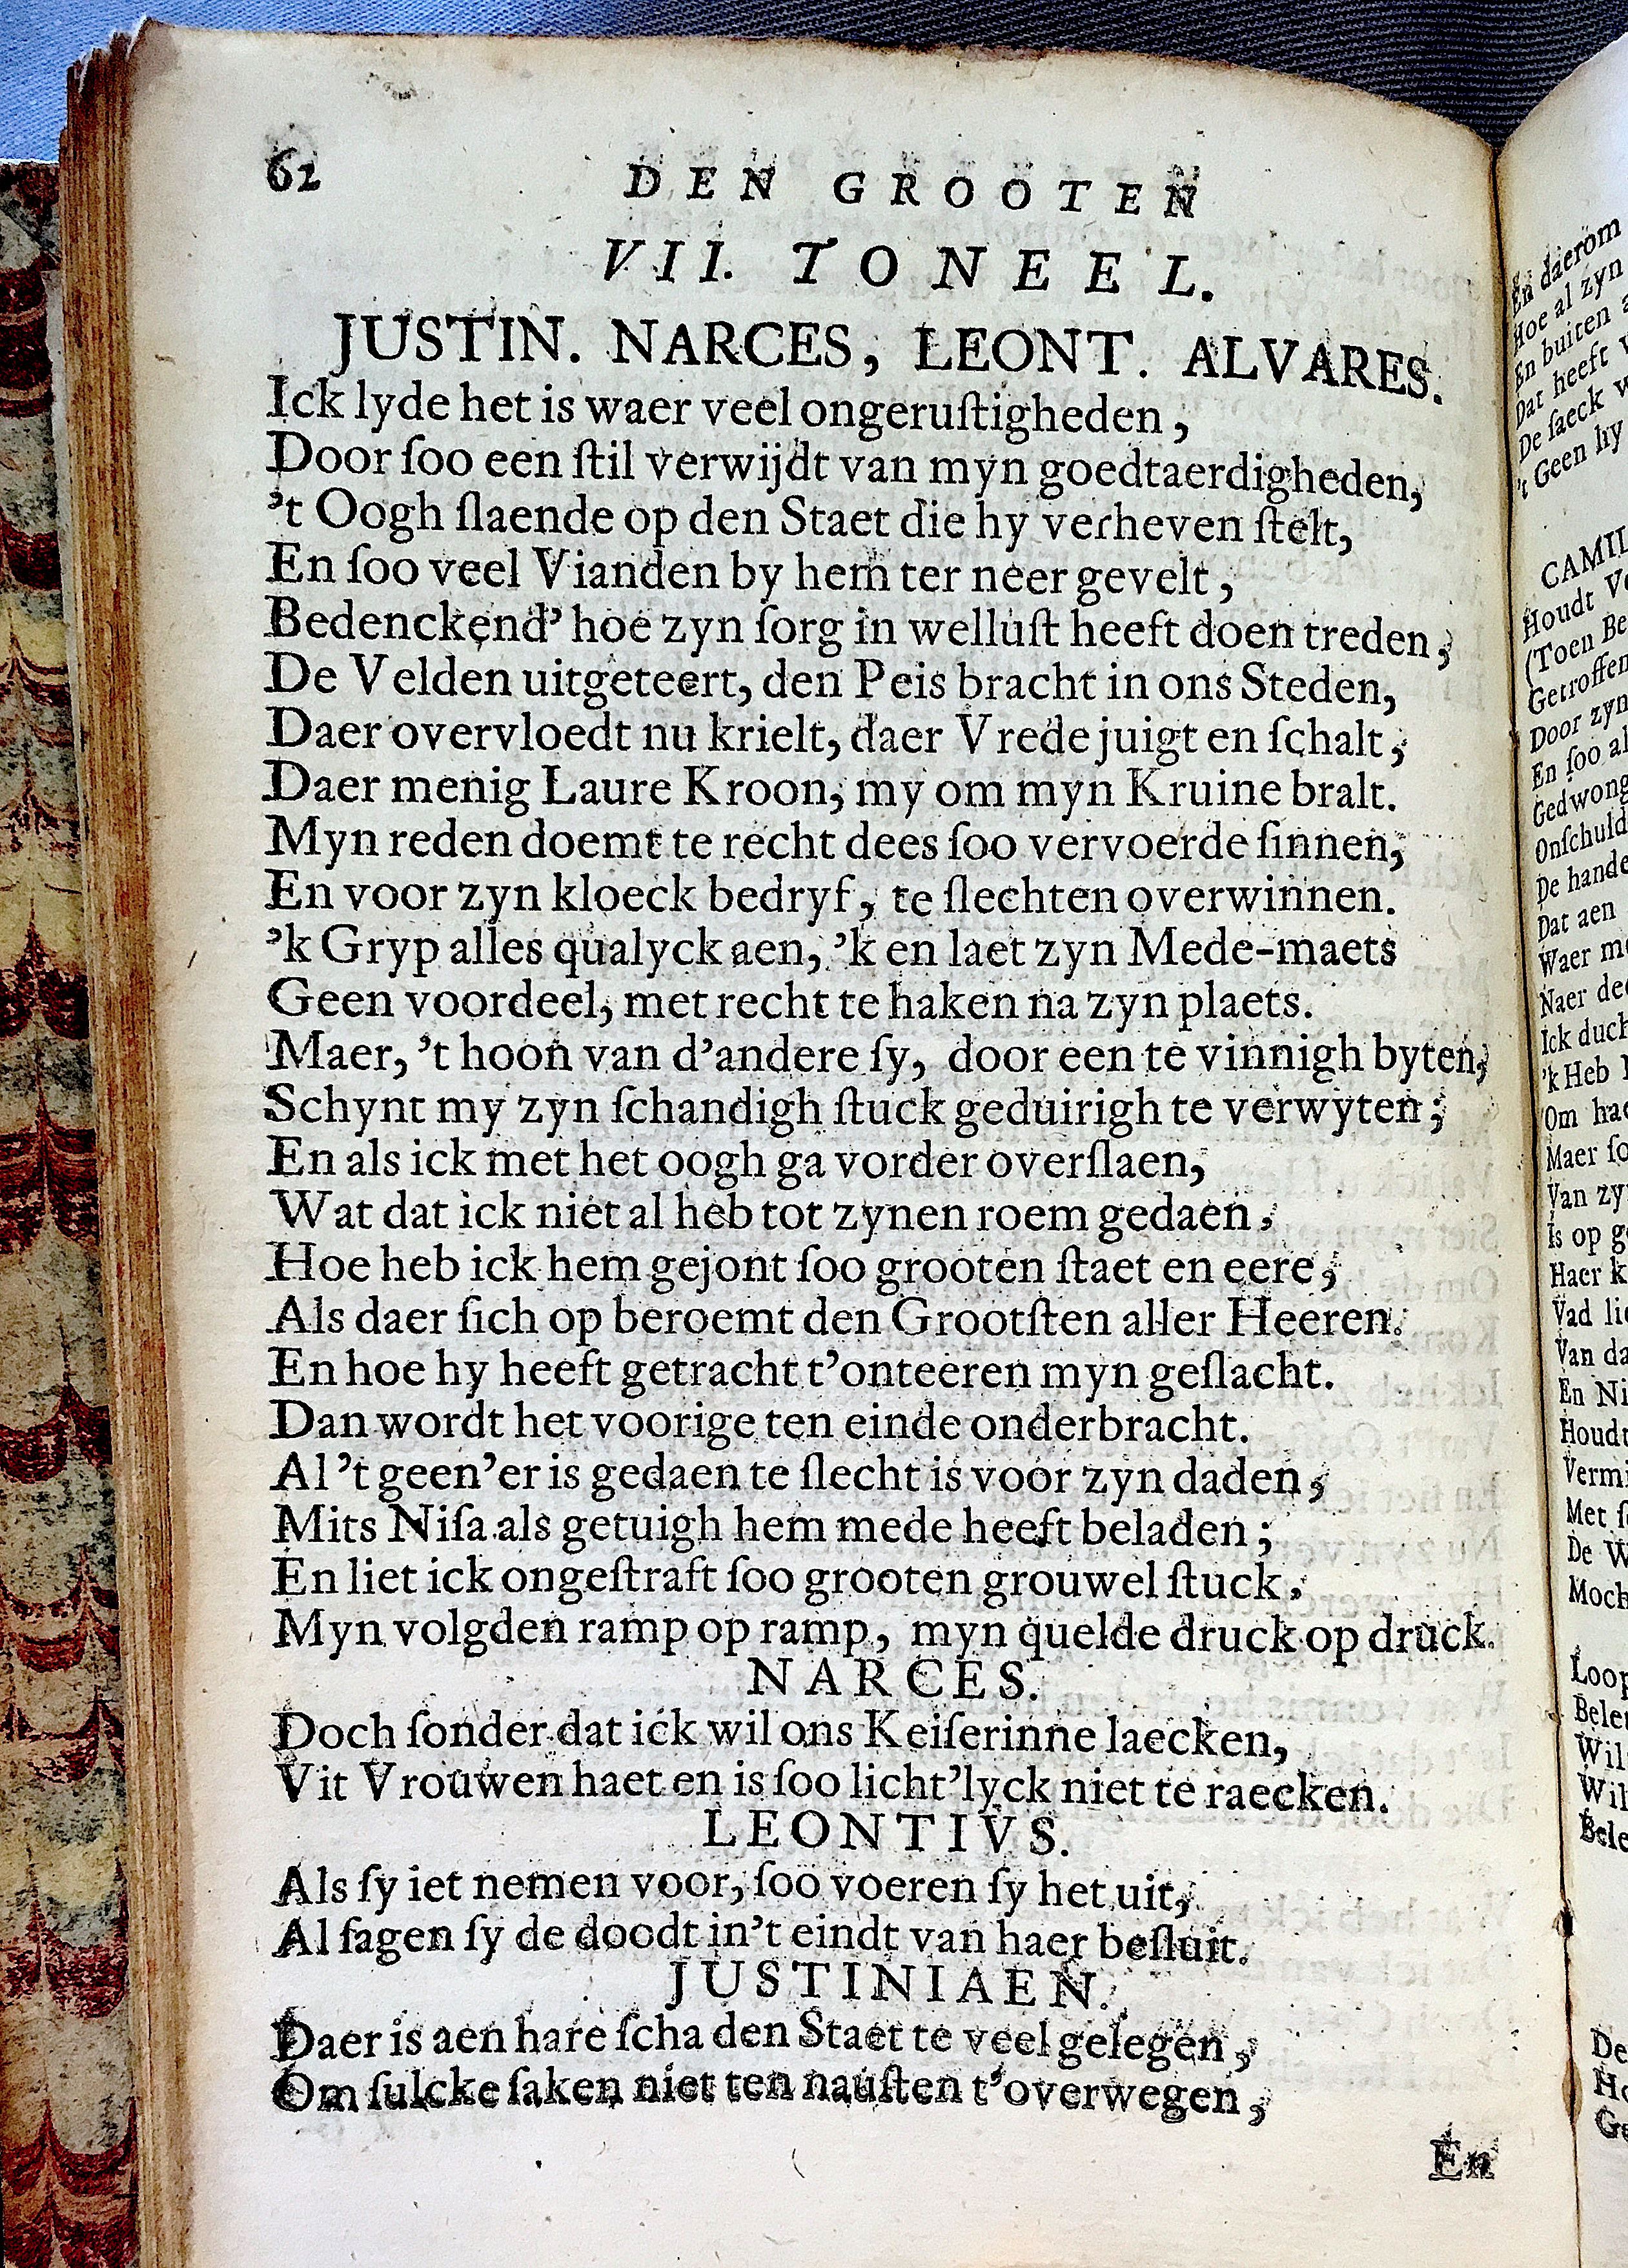 62 DEN GROOTEN
VII. TONEEL.
JUSTIN. NARCES, LEONT. ALVARES.
Ick lyde het is waer veel ongeruſtigheden,
Door ſoo een ſtil verwijdt van myn goedtaerdigheden,
't Oogh ſlaende op den Staet die hy verheven ſtelt,
En ſoo veel Vianden by hem ter neer gevelt,
Bedenckend' hoe zyn ſorg in welluſt heeft doen treden,
De Velden uitgeteert, den Peis bracht in ons Steden,
Daer overvloedt nu krielt, daer Vrede juigt en ſchalt,
Daer menig Laure Kroon, my om myn Kruine bralt.
Myn reden doemt te recht dees ſoo vervoerde ſinnen,
En voor zyn kloeck bedryf, te ſlechten overwinnen.
'k Gryp alles qualyck aen, 'k en laet zyn Mede-maets
Geen voordeel, met recht te haken na zyn plaets.
Maer, 't hoon van d'andere ſy, door een te vinnigh byten,
Schynt my zyn ſchandigh ſtuck geduirigh te verwyten;
En als ick met het oogh ga vorder overſlaen,
Wat dat ick niet al heb tot zynen roem gedaen,
Hoe heb ick hem gejont ſoo grooten ſtaet en eere,
Als daer ſich op beroemt den Grootſten aller Heeren.
En hoe hy heeft getracht t'onteeren myn geſlacht.
Dan wordt het voorige ten einde onderbracht.
Al 't geen'er is gedaen te ſlecht is voor zyn daden,
Mits Niſa als getuigh hem mede heeft beladen;
En liet ick ongeſtraft ſoo grooten grouwel ſtuck,
Myn volgden ramp op ramp, myn quelde druck op druck.
NARCES.
Doch ſonder dat ick wil ons Keiſerinne laecken,
Vit Vrouwen haet en is ſoo licht'lyck niet te raecken.
LEONTIVS.
Als ſy iet nemen voor, ſoo voeren ſy het uit,
Al ſagen ſy de doodt in't eindt van haer beſluit.
JUSTINIAEN.
Daer is aen hare ſcha den Staet te veel gelegen,
Om ſulcke ſaken niet ten nauſten t'overwegen,
En
En daerom
Hoe al zyn
En buiten
Dat heeft
De ſaeck
't Geen hy
Houdt
(Toen
Getroffen
Door zyn
En ſoo
De
Dat aen
Waer
Naer
'k Heb
Om
Maer
Van
Is op
Haer
Van
En
Met
De